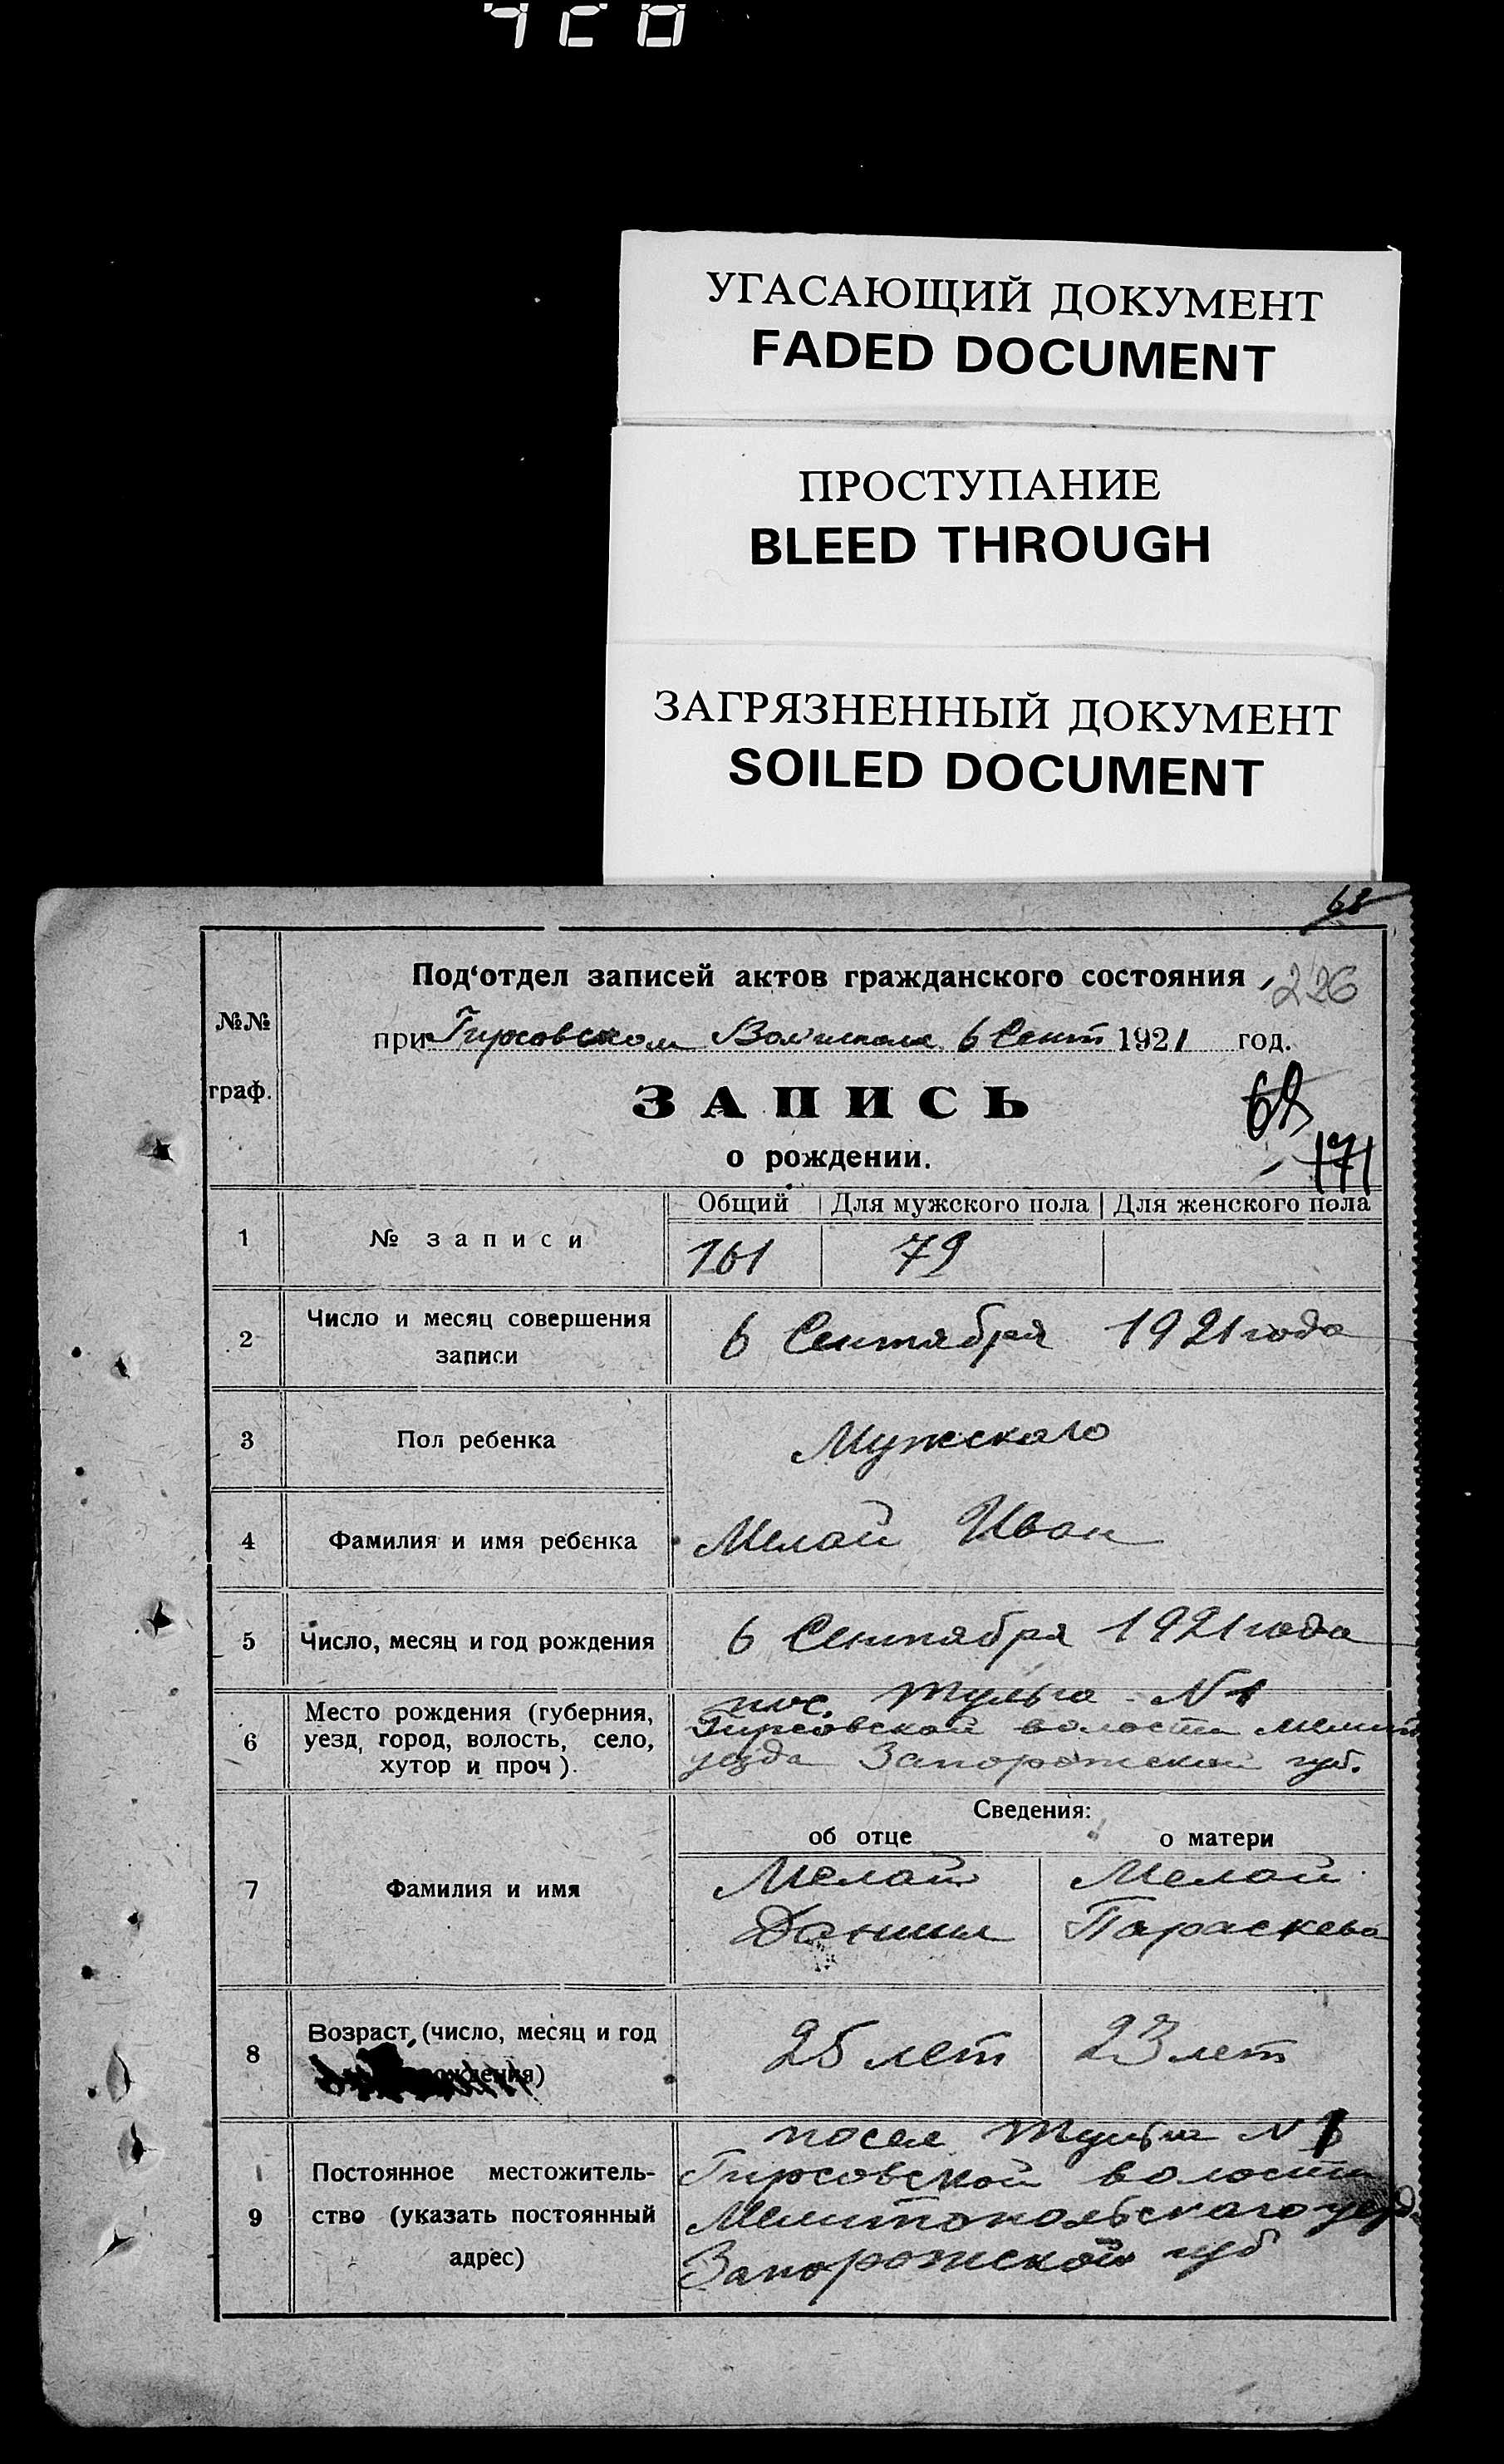 УГАСАЮЩИЙ ДОКУМЕНТ
FADED DOCUMENT
ПРОСТУПАНИЕ
BLEED THROUGH
ЗАГРЯЗНЕННЫЙ ДОКУМЕНТ
SOILED DOCUMENT
68
№№ граф.
Под‘отдел записей актов гражданского состояния
226
при Гирсовском 6 Сент 1921 год.
ЗАПИСЬ
68
о рождении.
171
Общий Для мужского пола Для женского пола
1 № записи 161 79
2 Число и месяц совершения записи 6 Сентября 1921 года
3 Пол ребенка Мужскаго
4 Фамилия и имя ребенка Мелай Иван
5 Число, месяц и год рождения 6 Сентября 1921 года
6 Место рождения (губерния, уезд, город, волость, село, хутор и проч).
пос. N 1
Гирсовской волости Мелит
уезда Запорожской губ.
Сведения:
об отце о матери
7 Фамилия и имя
Мелай Мелай
Даниил Параскева
8 Возраст, (число, месяц и год рождения) 25 лет 23 лет
9 Постоянное местожительство (указать постоянный адрес)
посел N 1
Гирсовской волости
Мелитопольскаго уезда
Запорожской губ